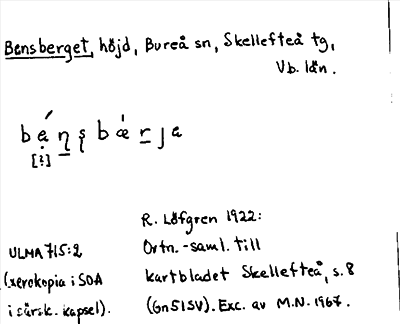 Bensberget, höjd, Bureå sn, Skellefteå tg,
Vb. län.
bá̤ṉʂbæ̍ṟja
[?]
R. Löfgren 1922:
ULMA 715:2
Ortn.-saml. till
(xerokopia i SOA
kartbladet Skellefteå, s. 8
i särsk. kapsel).
(Gn51SV). Exc. av M.N. 1967.